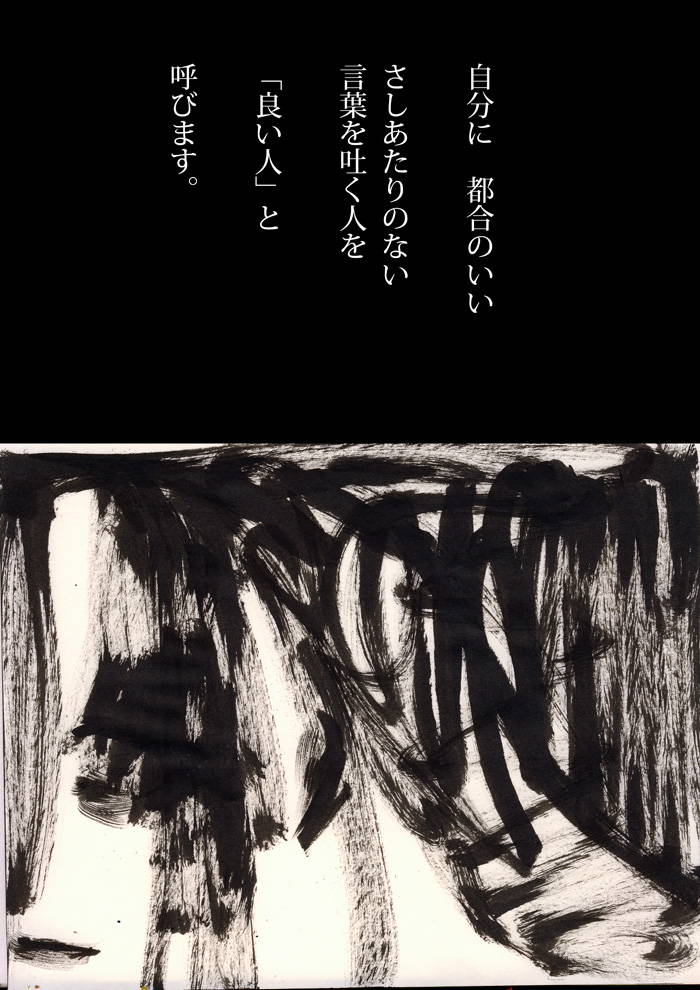 自分に　都合のいい
さしあたりのない
言葉を吐く人を
「良い人」と
呼びます。